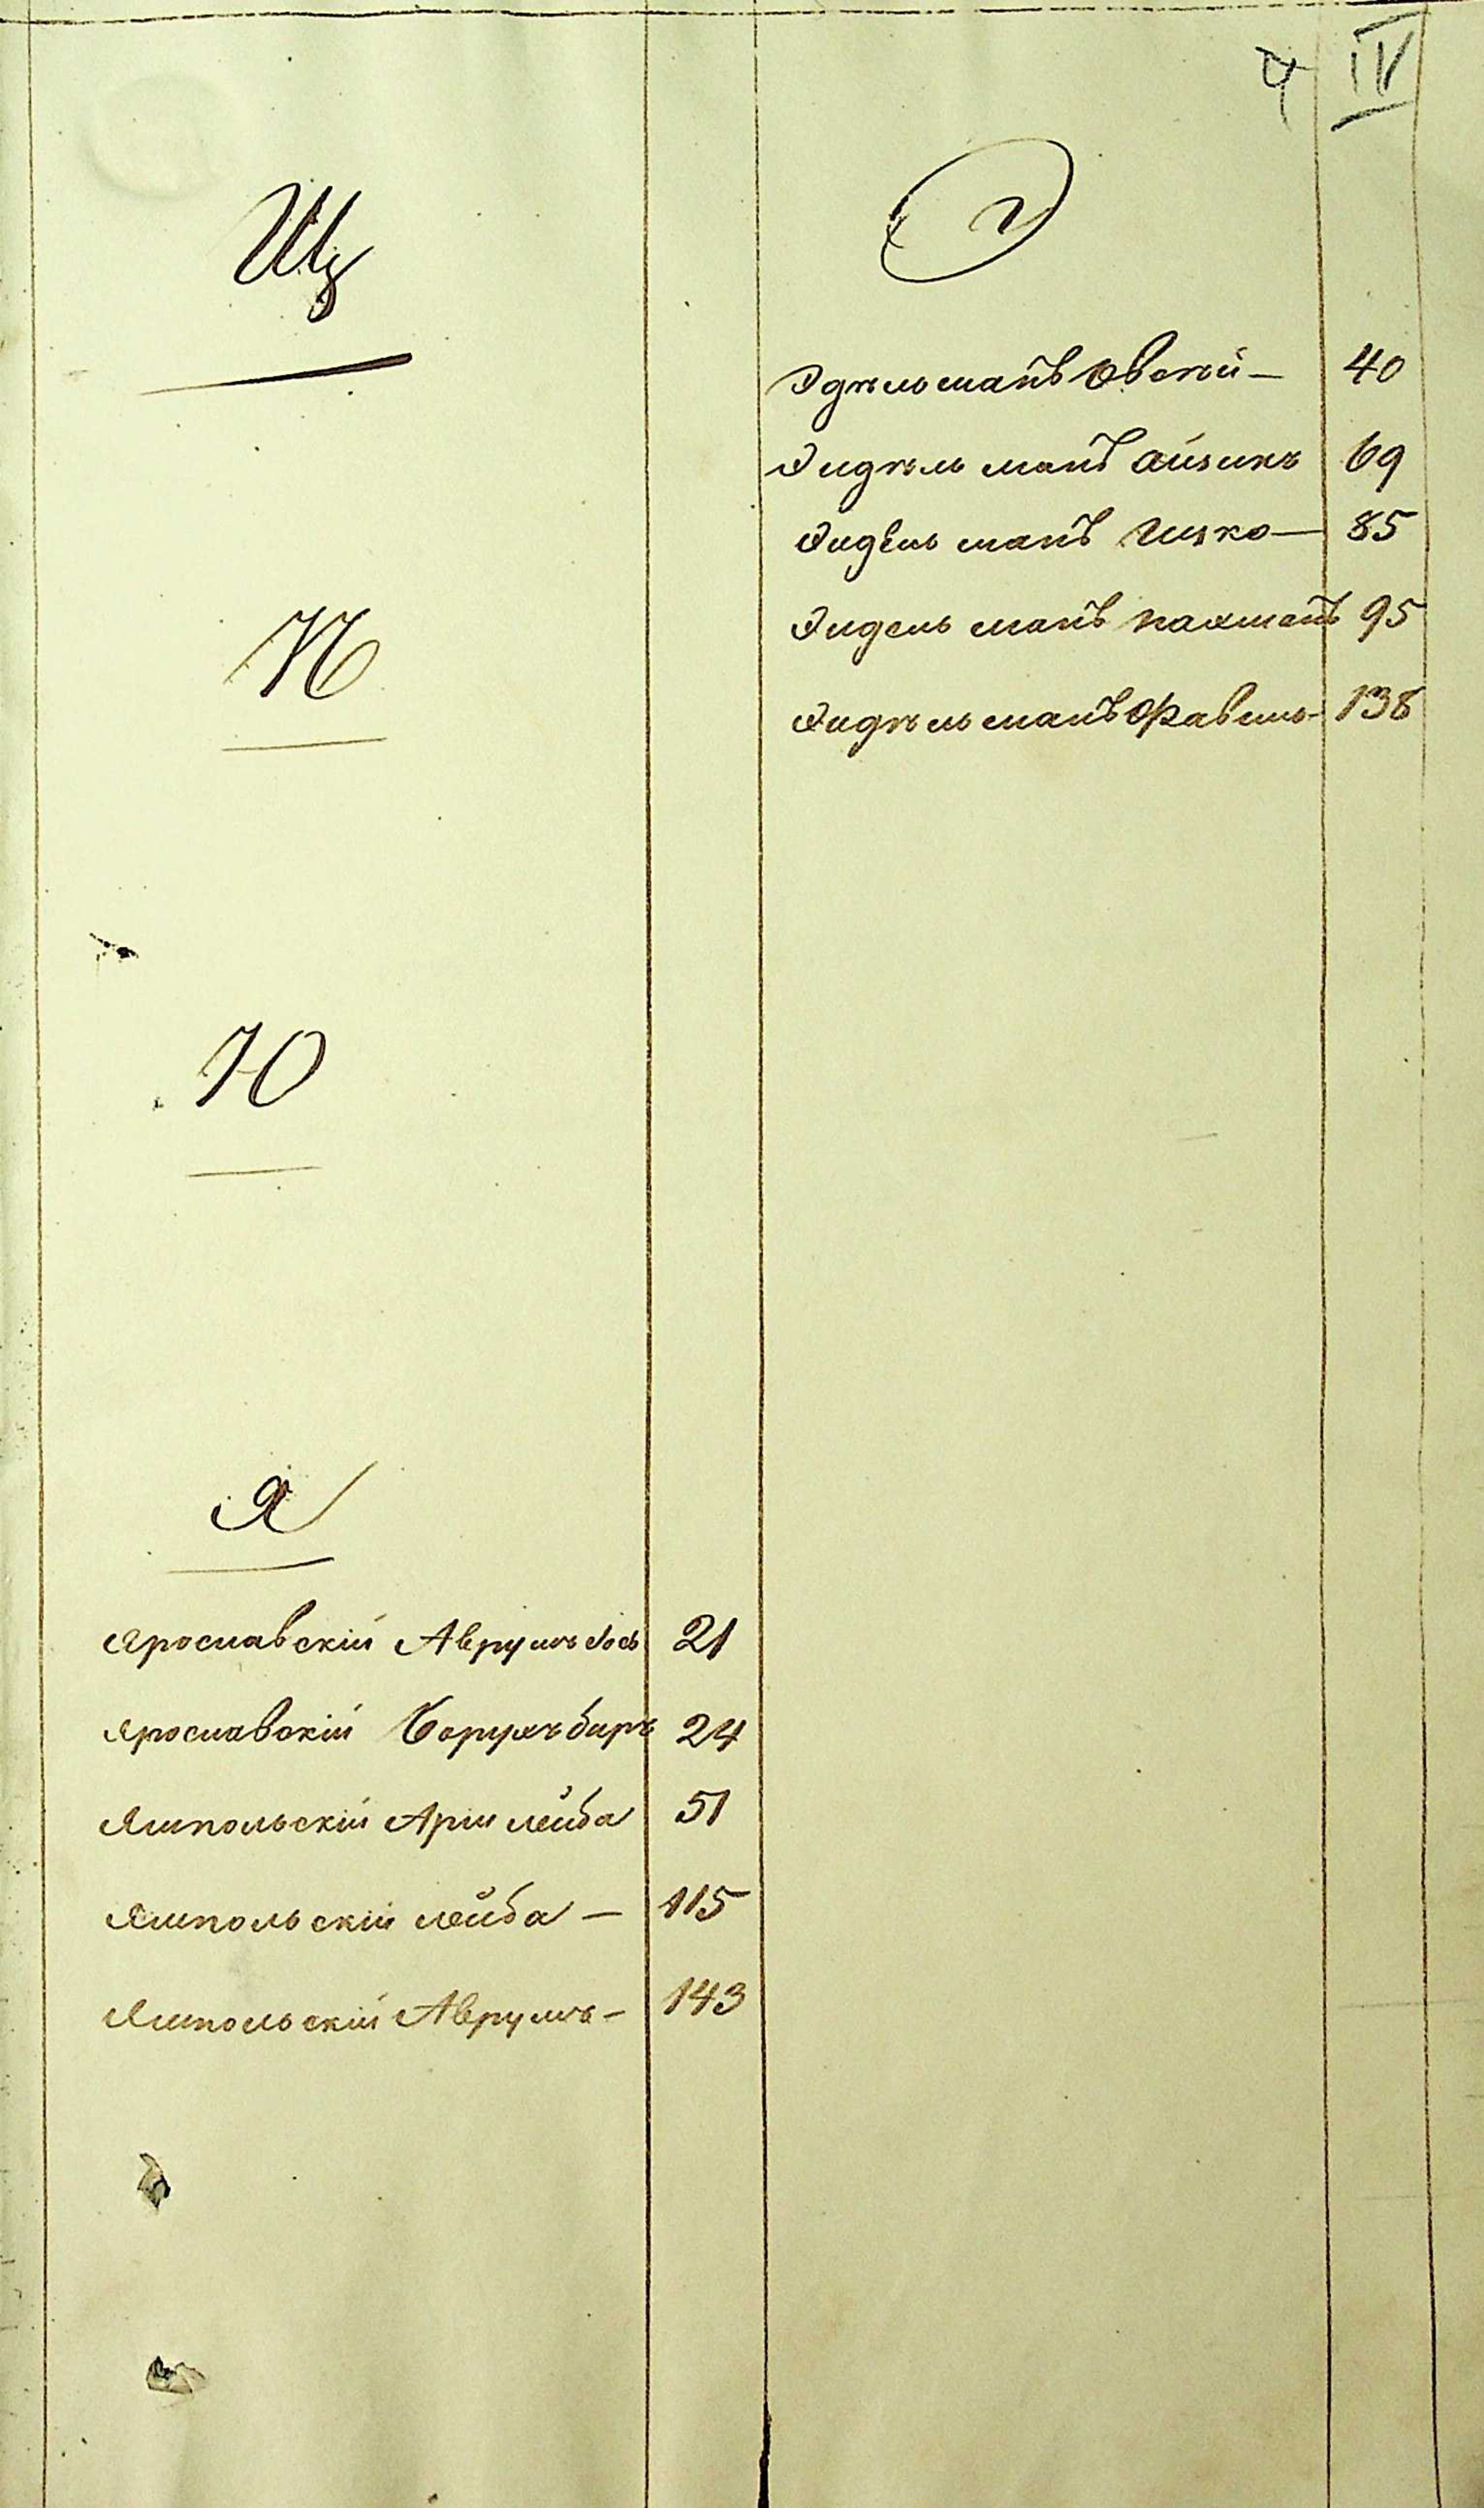 4 IV
Щ
Ѣ
Ю
Я
Ярославскій Аврумъ Іось 21
Ярославскій Борухъ беръ 24
Ямпольскій Арія лейба 51
Ямпольскій лейба — 115
Ямпольскій Аврумъ — 143
Э
Эдѣльманъ Овсѣй — 40
Эидѣльманъ Айзикъ 69
Эидельманъ Ицко — 85
Эидельманъ Нахманъ 95
Эидѣльманъ Фавель — 138